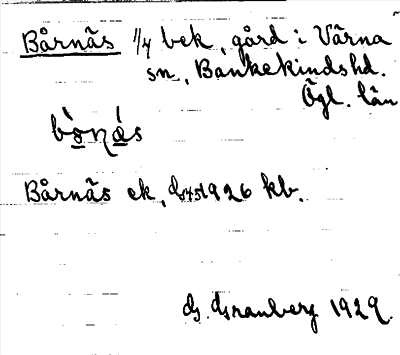 Bårnäs 1/4 bek, gård i Värna
sn, Bankekinds hd.
Ögl. län
bònǽs
Bårnäs ek, 1926 kb.
G. Granberg 1929.